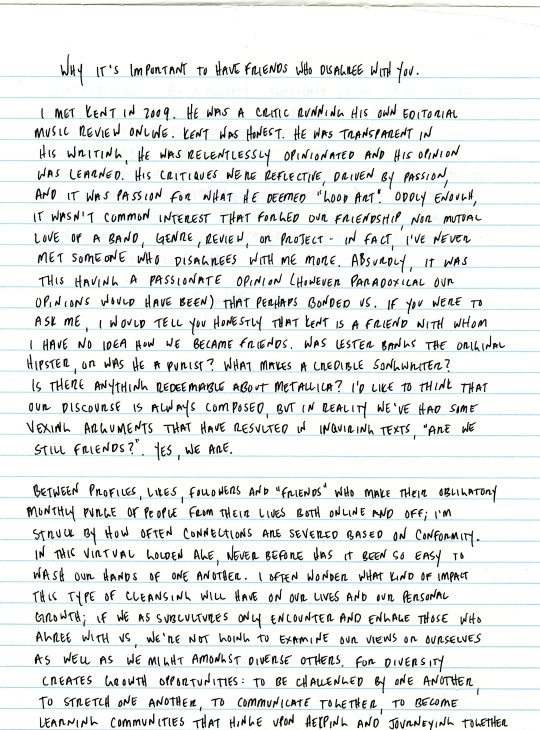 WHY IT'S IMPORTANT TO HAVE FRIENDS WHO DISAGREE WITH YOU.
I MET KENT IN 2009. HE WAS A CRITIC RUNNING HIS OWN EDITORIAL
MUSIC REVIEW ONLINE. KENT WAS HONEST. HE WAS TRANSPARENT IN
HIS WRITING, HE WAS RELENTLESSLY OPINIONATED AND HIS OPINION
WAS LEARNED. HIS CRITIQUES WERE REFLECTIVE, DRIVEN BY PASSION,
AND IT WAS PASSION FOR WHAT HE DEEMED "GOOD ART". ODDLY ENOUGH,
IT WASN'T COMMON INTEREST THAT FORGED OUR FRIENDSHIP, NOR MUTUAL
LOVE OF A BAND, GENRE, REVIEW, OR PROJECT - IN FACT, I'VE NEVER
MET SOMEONE WHO DISAGREES WITH ME MORE. ABSURDLY, IT WAS
THIS HAVING A PASSIONATE OPINION (HOWEVER PARADOXICAL OUR
OPINIONS WOULD HAVE BEEN) THAT PERHAPS BONDED US. IF YOU WERE TO
ASK ME, I WOULD TELL YOU HONESTLY THAT KENT IS A FRIEND WITH WHOM
I HAVE NO IDEA HOW WE BECAME FRIENDS. WAS LESTER BANGS THE ORIGINAL
HIPSTER, OR WAS HE A PURIST? WHAT MAKES A CREDIBLE SONGWRITER?
IS THERE ANYTHING REDEEMABLE ABOUT METALLICA? I'D LIKE TO THINK THAT
OUR DISCOURSE IS ALWAYS COMPOSED, BUT IN REALITY WE'VE HAD SOME
VEXING ARGUMENTS THAT HAVE RESULTED IN INQUIRING TEXTS, "ARE WE
STILL FRIENDS?". YES, WE ARE.
BETWEEN PROFILES, LIKES, FOLLOWERS AND "FRIENDS" WHO MAKE THEIR OBLIGATORY
MONTHLY PURGE OF PEOPLE FROM THEIR LIVES BOTH ONLINE AND OFF; I'M
STRUCK BY HOW OFTEN CONNECTIONS ARE SEVERED BASED ON CONFORMITY.
IN THIS VIRTUAL GOLDEN AGE, NEVER BEFORE HAS IT BEEN SO EASY TO
WASH OUR HANDS OF ONE ANOTHER. I OFTEN WONDER WHAT KIND OF IMPACT
THIS TYPE OF CLEANSING WILL HAVE ON OUR LIVES AND OUR PERSONAL
GROWTH; IF WE AS SUBCULTURES ONLY ENCOUNTER AND ENGAGE THOSE WHO
AGREE WITH US, WE'RE NOT GOING TO EXAMINE OUR VIEWS OR OURSELVES
AS WELL AS WE MIGHT AMONGST DIVERSE OTHERS. FOR DIVERSITY
CREATES GROWTH OPPORTUNITIES: TO BE CHALLENGED BY ONE ANOTHER,
TO STRETCH ONE ANOTHER, TO COMMUNICATE TOGETHER, TO BECOME
LEARNING COMMUNITIES THAT HINGE UPON HELPING AND JOURNEYING TOGETHER